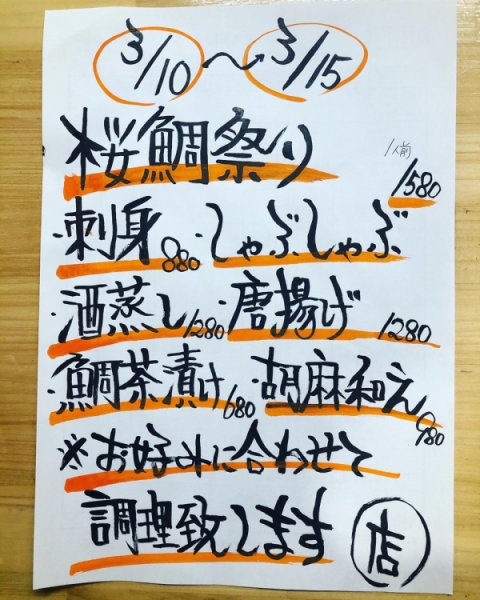 3/10〜3/15
桜鯛祭り
1人前
1580
・刺身 880 ・しゃぶしゃぶ
・酒蒸し 1280 ・唐揚げ 1280
・鯛茶漬け 680 ・胡麻和え 980
※お好みに合わせて
調理致します 店